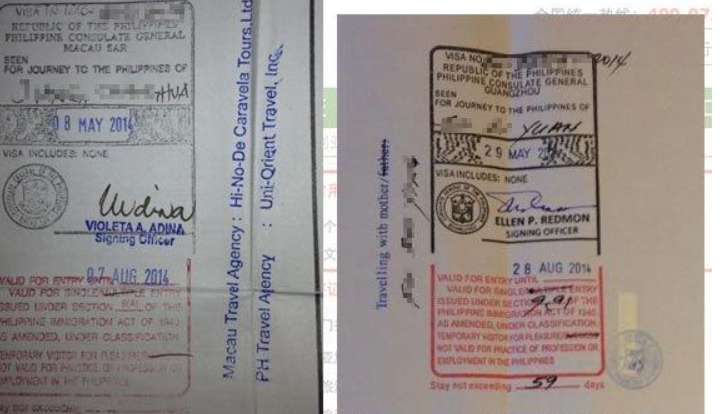 VISA NO. MAC-
REPUBLIC OF THE PHILIPPINES
PHILIPPINE CONSULATE GENERAL
MACAU SAR
SEEN
FOR JOURNEY TO THE PHILIPPINES OF
HUA
08 MAY 2014
VISA INCLUDES: NONE
VIOLETA A. ADINA
Signing Officer
VALID FOR ENTRY UNTIL 07 AUG 2014
VALID FOR SINGLE/MULTIPLE ENTRY
ISSUED UNDER SECTION OF THE
PHILIPPINE IMMIGRATION ACT OF 1940
AS AMENDED, UNDER CLASSIFICATION
TEMPORARY VISITOR FOR PLEASURE
NOT VALID FOR PRACTICE OF PROFESSION OR
EMPLOYMENT IN THE PHILIPPINES
Stay not exceeding
Macau Travel Agency : Hi-No-De Caravela Tours, Ltd
PH Travel Agency : Uni-Orient Travel, Inc.
Travelling with mother/father:
VISA NO. 2014
REPUBLIC OF THE PHILIPPINES
PHILIPPINE CONSULATE GENERAL
GUANGZHOU
SEEN
FOR JOURNEY TO THE PHILIPPINES OF
YUAN
29 MAY
VISA INCLUDES: NONE
ELLEN P. REDMON
SIGNING OFFICER
28 AUG 2014
VALID FOR ENTRY UNTIL
VALID FOR SINGLE/MULTIPLE ENTRY
ISSUED UNDER SECTION 9,91 OF THE
PHILIPPINE IMMIGRATION ACT OF 1940,
AS AMENDED, UNDER CLASSIFICATION,
TEMPORARY VISITOR FOR PLEASURE
NOT VALID FOR PRACTICE OF PROFESSION OR
EMPLOYMENT IN THE PHILIPPINES
Stay not exceeding 59 days